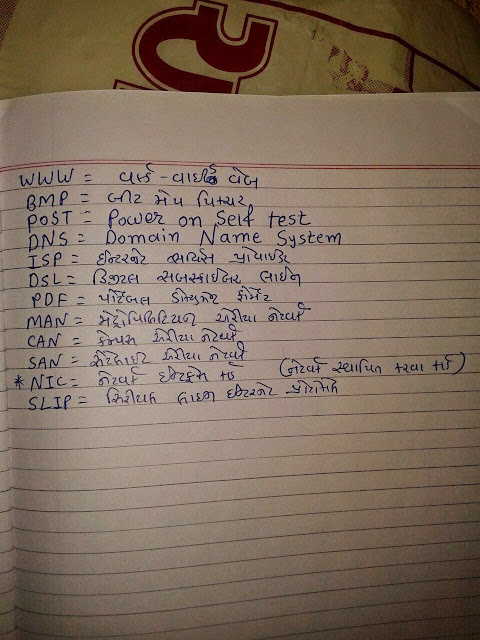 WWW = વર્લ્ડ - વાઈડ વેબ
BMP = બીટ મેપ પિક્ચર
POST = Power on Self test
DNS = Domain Name System
ISP = ઈન્ટરનેટ સર્વિસ પ્રોવાઈડર
DSL = ડિજીટલ સબસ્ક્રાઈબર લાઈન
PDF = પોર્ટેબલ ડોક્યુમેન્ટ ફોર્મેટ
MAN = મેટ્રોપોલિટિયન એરીયા નેટવર્ક
CAN = કેમ્પસ એરીયા નેટવર્ક
SAN = સેટેલાઈટ એરીયા નેટવર્ક
* NIC = નેટવર્ક ઈન્ટરફેસ કાર્ડ (નેટવર્ક સ્થાપિત કરવા માટે)
SLIP = સિરીયલ લાઇન ઈન્ટરનેટ પ્રોટોકોલ